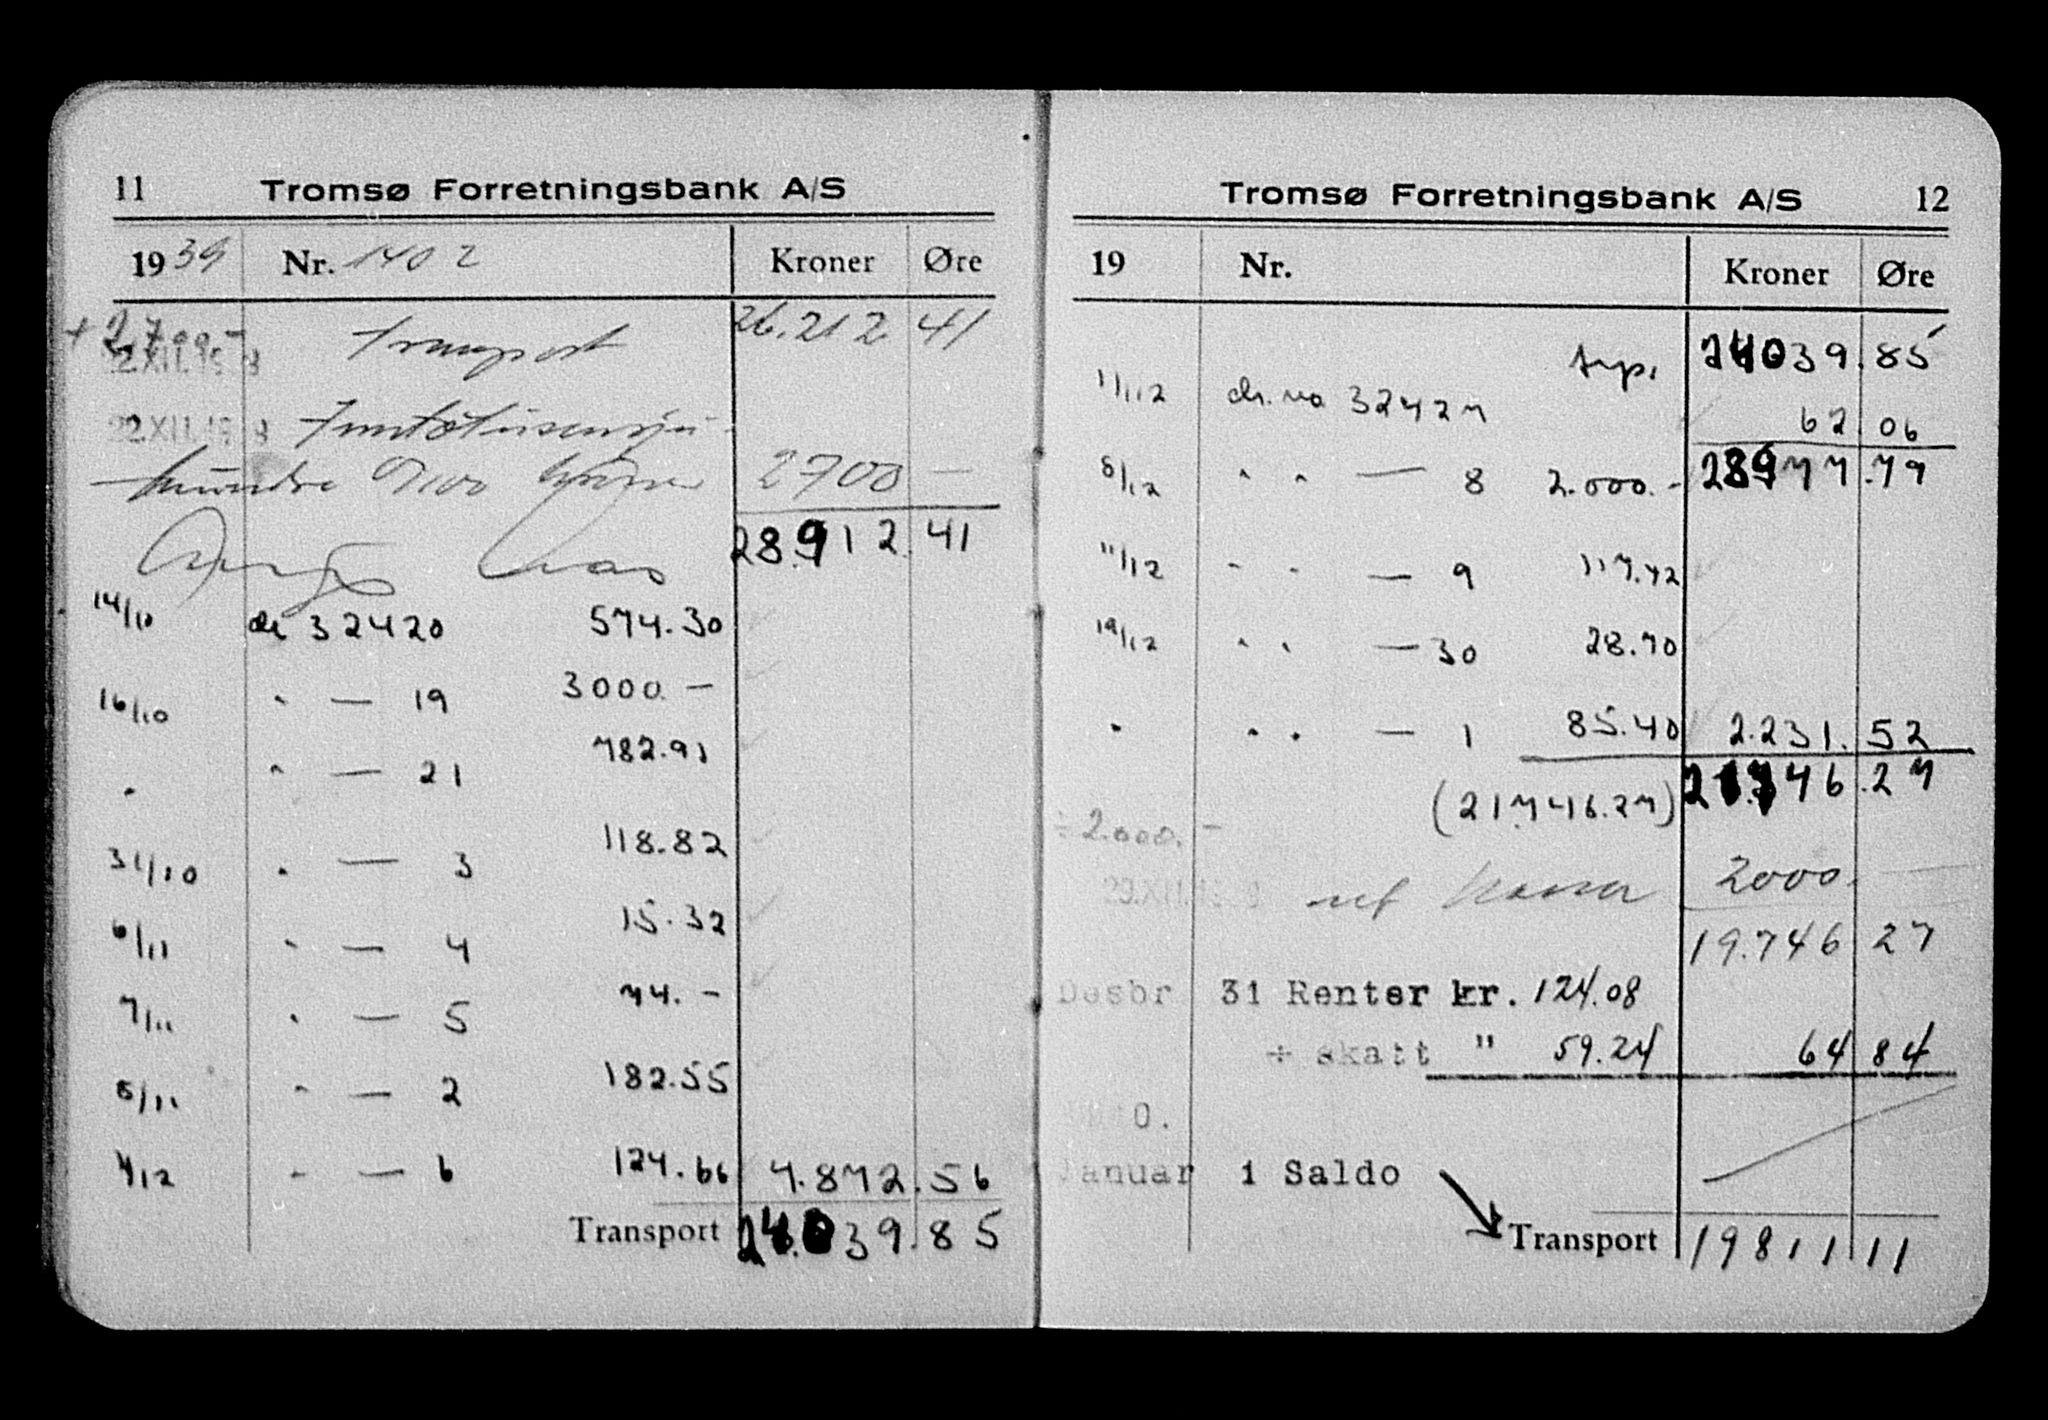 11 Tromsø Forretningsbank A/S
1939 Nr. 1402 Kroner Øre
+ 2.700.-
Transport 26.212 41
22.XII.19
hundre kroner 2700 —
28.912.41
14/10 ch 32420 574.30
16/10 " — 19 3000.—
" " — 21 782.91
31/10 " — 3 118.82
6/11 " — 4 15.32
7/11 " — 5 74.-
8/11 " — 2 182.55
4/12 " — 6 124.66 4.872.56
Transport 24.039.85
Tromsø Forretningsbank A/S 12
19 Nr. Kroner Øre
trp. 24039.85
1/12 ch. no 32427 62.06
8/12 " " — 8 2.000.- 77.79
11/12 " " — 9 117.42
19/12 " " — 30 28.70
" " " — 1 85.40 2.231.52
(21.746.27) 21.746.27
÷ 2.000.-
2000.—
19.746 27
Desbr 31 Renter kr. 124.08
÷ skatt " 59.24 64 84
Januar 1 Saldo
Transport 19811 11